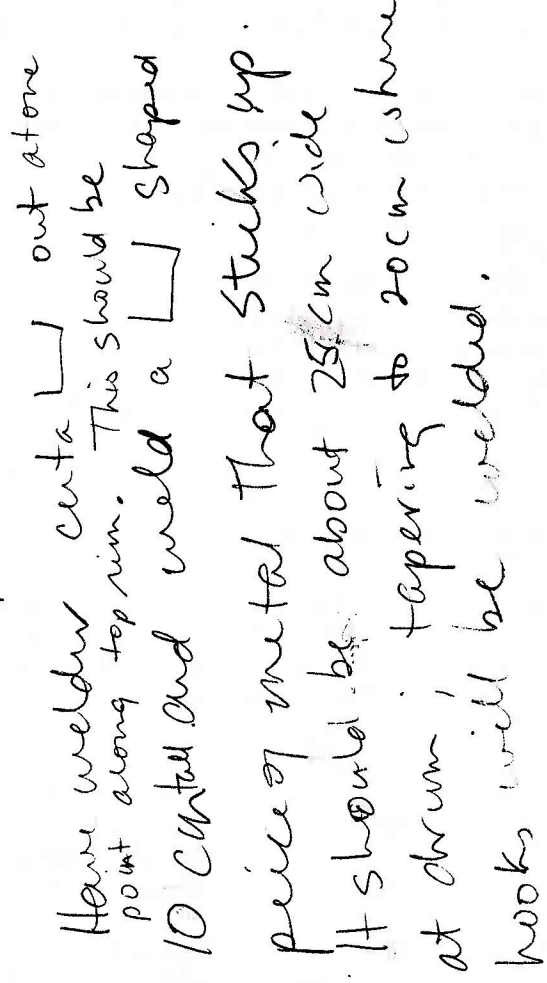 Have welder cut a ⊔ out at one
point along top rim. This should be
10 cm tall and weld a ⊔ shaped
peice of metal that sticks up.
It should be about 25 cm wide
at drum, tapering to 20 cm where
hooks will be welded.